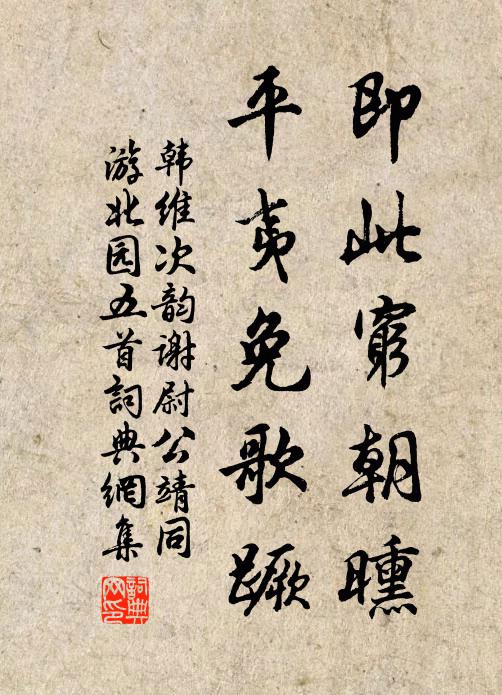 即此窮朝曛
平夷免歌蹶
韩维次韵谢尉公靖同
游北园五首詞典網集